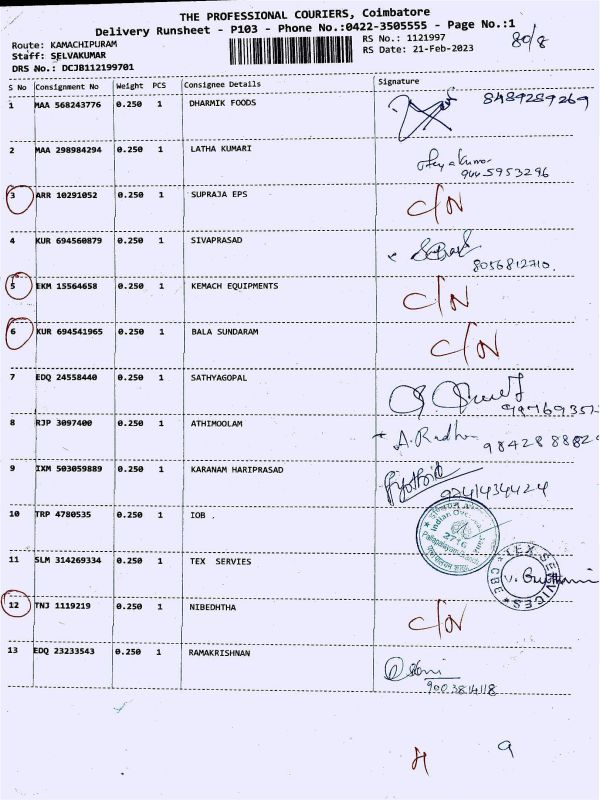 THE PROFESSIONAL COURIERS, Coimbatore
Delivery Runsheet - P103 - Phone No.:0422-3505555 - Page No.:1
Route: KAMACHIPURAM RS No.: 1121997 80/8
Staff: SELVAKUMAR RS Date: 21-Feb-2023
DRS No.: DCJB112199701
S No Consignment No Weight PCS Consignee Details Signature
1 MAA 568243776 0.250 1 DHARMIK FOODS 8489289269
2 MAA 298984294 0.250 1 LATHA KUMARI
9445953296
3 ARR 10291052 0.250 1 SUPRAJA EPS C/N
4 KUR 694560879 0.250 1 SIVAPRASAD
8056812710.
5 EKM 15564658 0.250 1 KEMACH EQUIPMENTS C/N
6 KUR 694541965 0.250 1 BALA SUNDARAM C/N
7 EDQ 24558440 0.250 1 SATHYAGOPAL
8 RJP 3097400 0.250 1 ATHIMOOLAM A. Radha 984288882
9 IXM 503059889 0.250 1 KARANAM HARIPRASAD
9241434424
10 TRP 4780535 0.250 1 IOB .
Indian
2716
11 SLM 314269334 0.250 1 TEX SERVIES
TEX SERVICES CBE
12 TNJ 1119219 0.250 1 NIBEDHTHA C/N
13 EDQ 23233543 0.250 1 RAMAKRISHNAN
9003814118
9